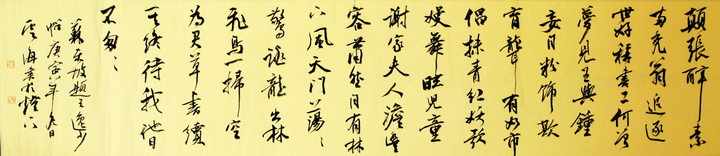 顛張醉素
兩禿翁追逐
世好稱書工何曾
夢見王與鍾
妄自粉飾欺
盲聾有如市
倡抹青紅妖歌
嫚舞眩兒童
謝家夫人澹豐
容蕭然自有林
下風天門蕩〻
驚跳龍出林
飛鳥一掃空
為君草書續
其終待我他日
不匆〻
蘇東坡題王逸少
帖庚寅年冬日
雲海書於燈下